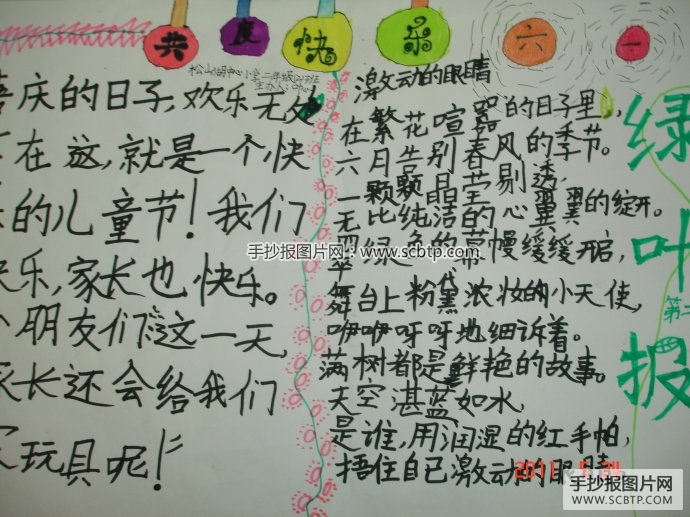 共度快乐六一
松山湖中心小学二年级(2)班
主办人:
庆的日子,欢乐无处
在这,就是一个快
的儿童节!我们
快乐,家长也快乐。
朋友们这一天,
家长还会给我们
玩具呢!
激动的眼睛
在繁花喧嚣的日子里,
六月告别春风的季节。
一颗颗晶莹剔透,
无比纯洁的心翼翼的绽开。
翠绿色的幕幔缓缓开启,
舞台上粉黛浓妆的小天使,
咿咿呀呀地细诉着。
满树都是鲜艳的故事。
天空湛蓝如水,
是谁,用润湿的红手帕,
捂住自己激动的眼睛
绿叶报
第二
手抄报图片网:www.scbtp.com
手抄报图片网
WWW.SCBTP.COM